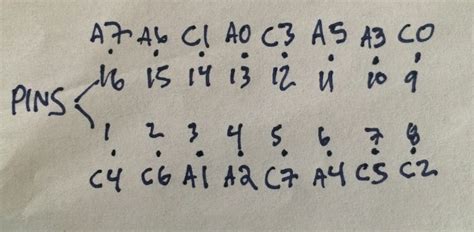 A7 A6 C1 A0 C3 A5 A3 C0
16 15 14 13 12 11 10 9
PINS
1 2 3 4 5 6 7 8
C4 C6 A1 A2 C7 A4 C5 C2